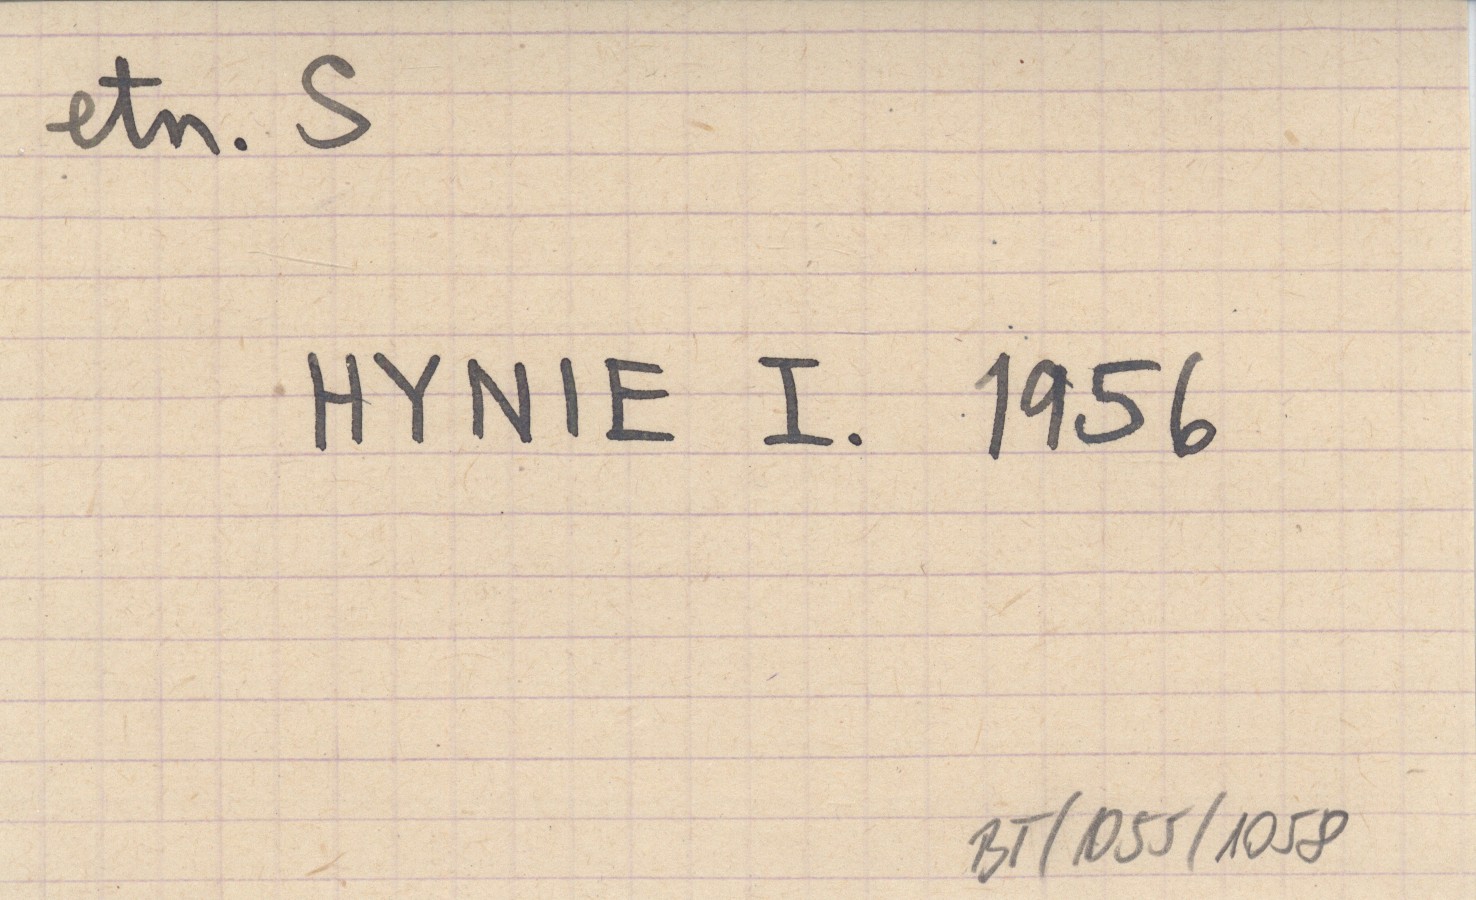 etn. S
HYNIE I. 1956
BT/1055/1058